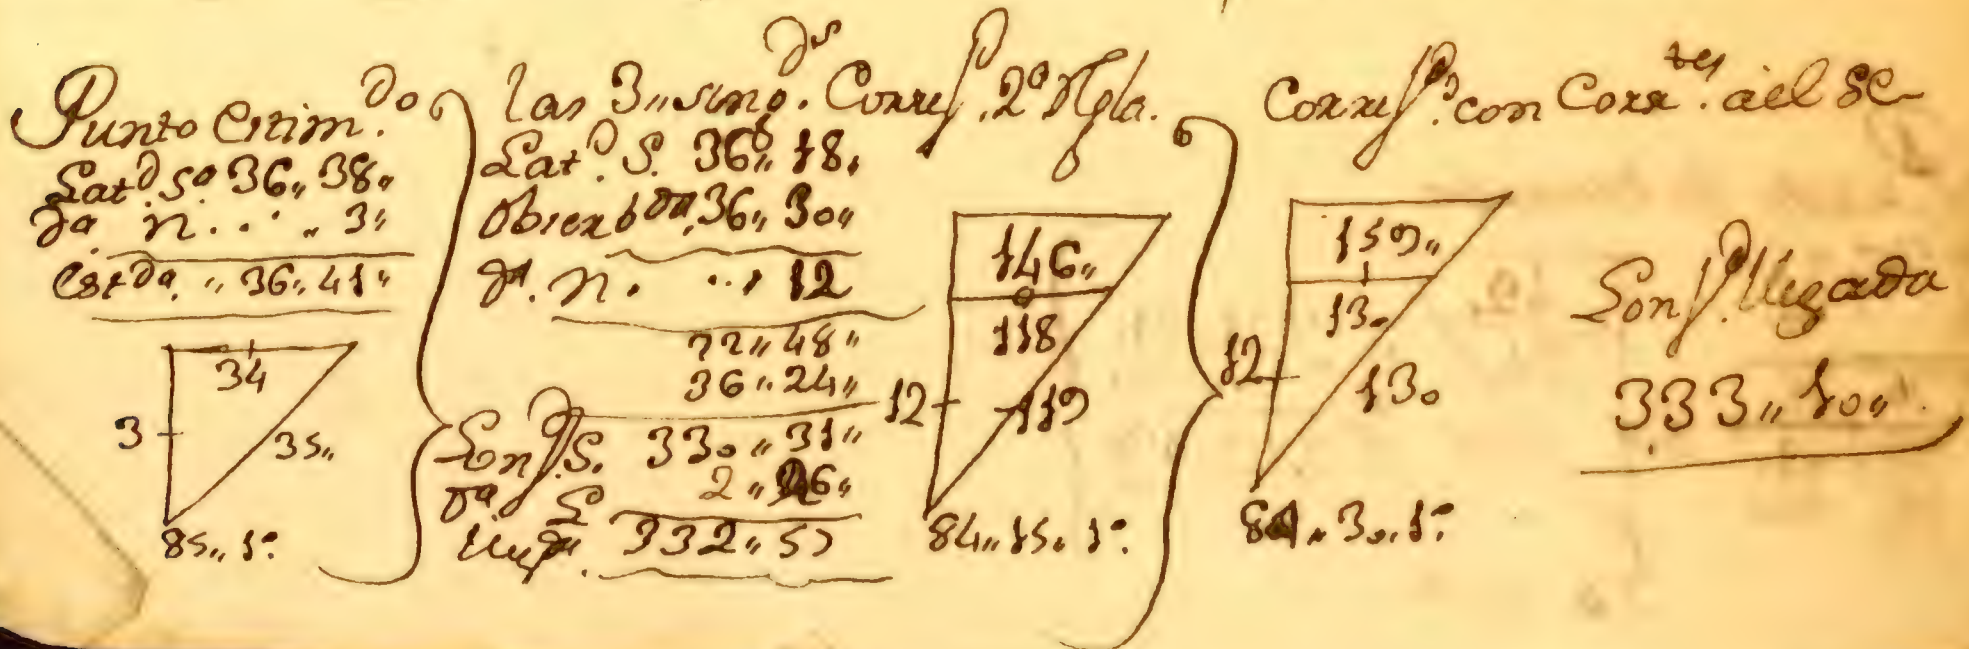 Punto Estim.do
Lat.d S.a 36,, 38,,
Da. N. . . ,, 3,,
Est.da ,, 36,, 41,,
34
3
35,,
85,, 1º
las 3,, sing.ds Corres.d 2ª Rgla.
Lat.d S. 36,, 18,
Obserb.da 36,, 30,,
Dª. N. . . , 12
72,, 48,,
36,, 24,,
Lon.d S. 330,, 31,,
Dª. L 2,, 26,,
332,, 57
146,,
118
12
119
84,, 15,, 1º
Corres.d con Corr.tes al SE
159,,
130
12
130
3,, 1º
Lon.d llegada
333,, 10,,